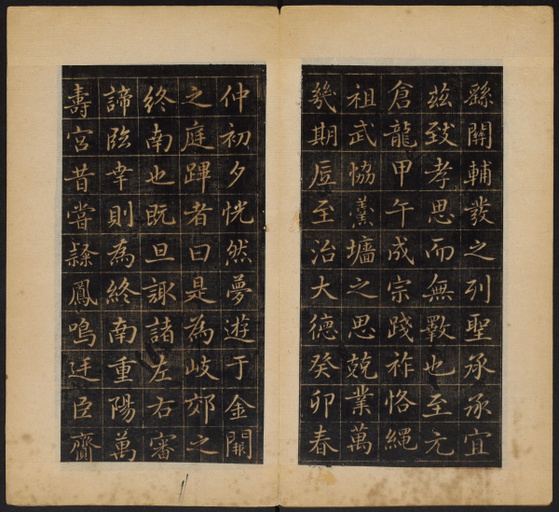 繇關輔發之列聖承承宜
茲致孝思而無斁也至元
倉龍甲午成宗踐祚恪繩
祖武恊羹墻之思兢業萬
幾期底至治大德癸卯春
仲初夕恍然夢遊于金闕
之庭蹕者曰是為岐郊之
終南也既旦諏諸左右審
諦臨幸則為終南重陽萬
壽宮昔嘗隸鳳鳴廷臣齎